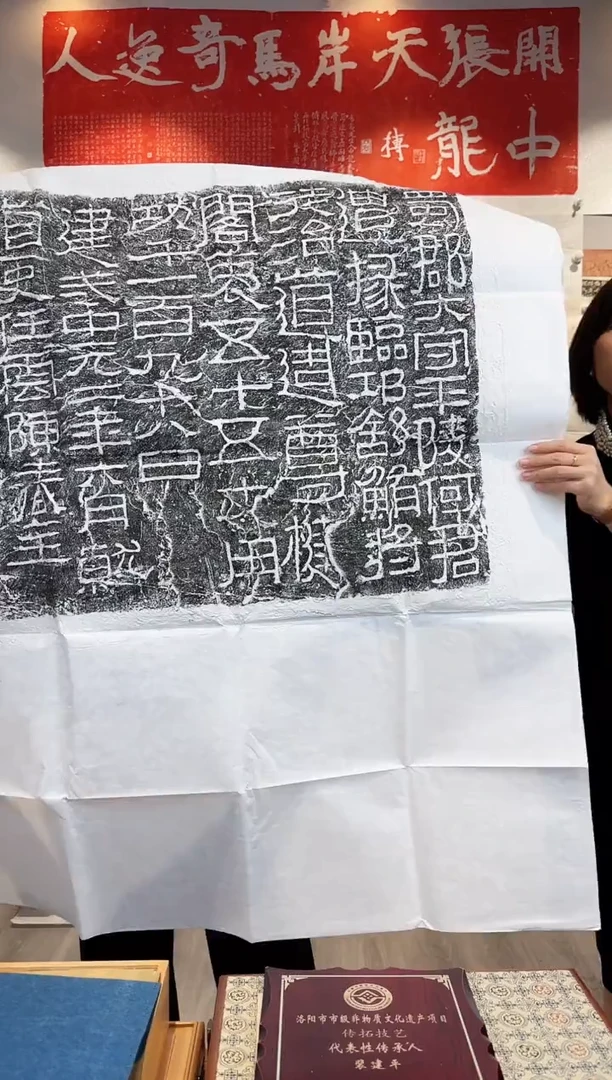 開張天岸馬奇逸人
中龍
摶
蜀郡大守平陵何君
遣掾臨邛舒鮪將
徒治道造尊楗
閣袤五十五丈用
功千一百九十八日
建武中元二年六月就
道史任雲陳春主
洛阳市市级非物质文化遗产项目
传拓技艺
代表性传承人
裴建平